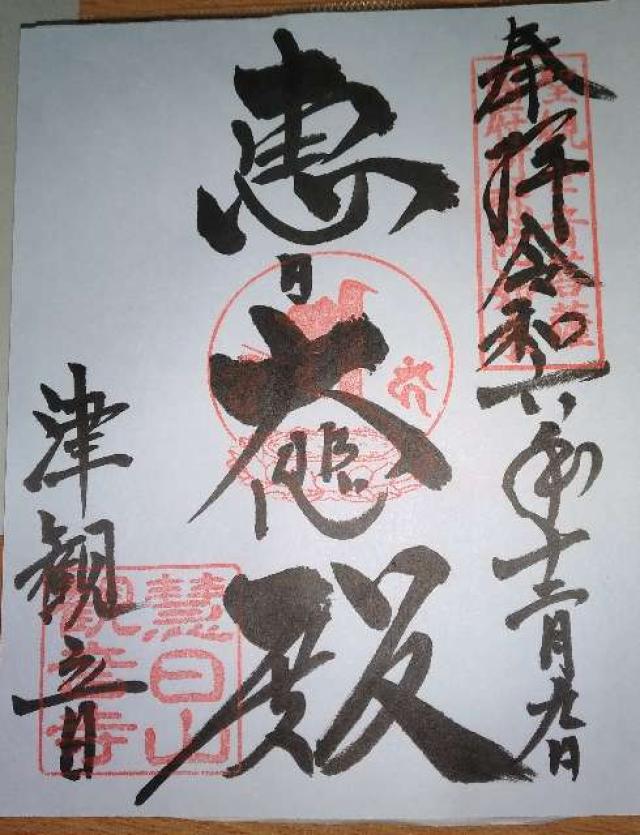 奉拝 令和六年十二月九日
恵日 大悲殿
津観音
慧日山
観音寺